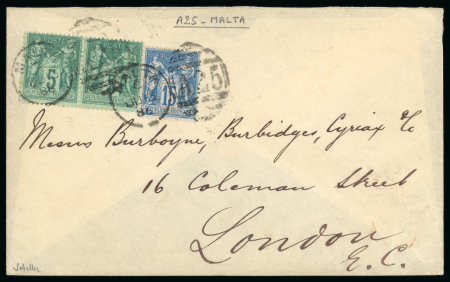 A25 - MALTA
5
5
15
Messrs Burboyne, Burbidges, Cyriax &c
16 Coleman Street
London
E.C.